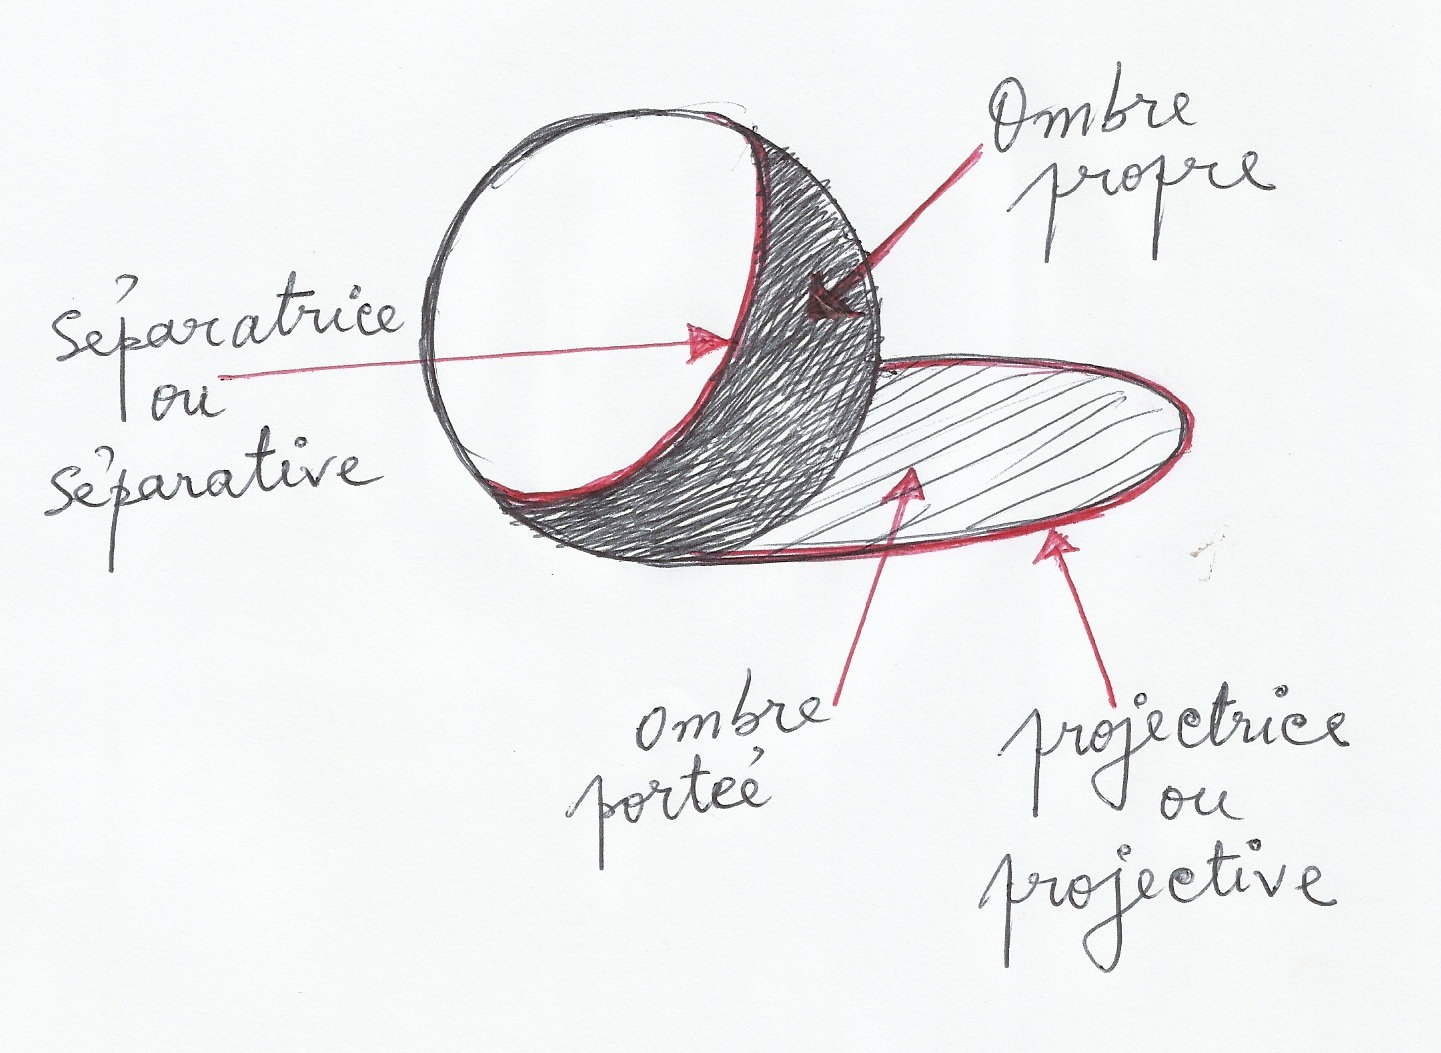 Ombre
propre
séparatrice
ou
séparative
ombre
porteé
projectrice
ou
projective